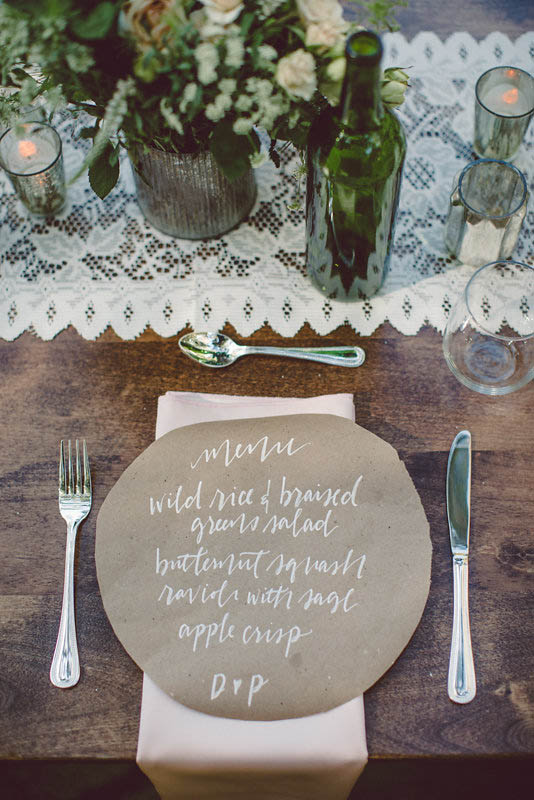 menu
wild rice & braised
greens salad
butternut squash
ravioli with sage
apple crisp
D ♥ P